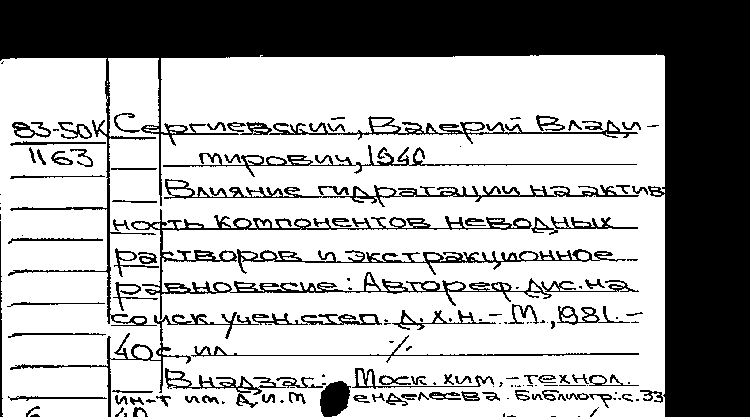 83-50К Сергиевский, Валерий Влади-
1163 мирович, 1940
Влияние гидратации на актив
ность компонентов неводных
растворов и экстракционное
равновесие: Автореф. дис. на
соиск. учен. степ. д. х. н. - М., 1981. -
40 с., ил. %
В надзаг.: Моск. хим.-технол.
ин-т им. Д. И. М енделеева. Библиогр.: с. 33